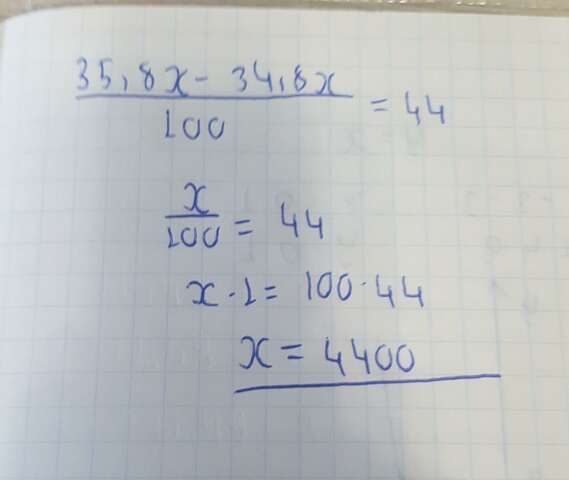 35,8x - 34,8x
100
= 44
x
100
= 44
x · 1 = 100 · 44
x = 4400